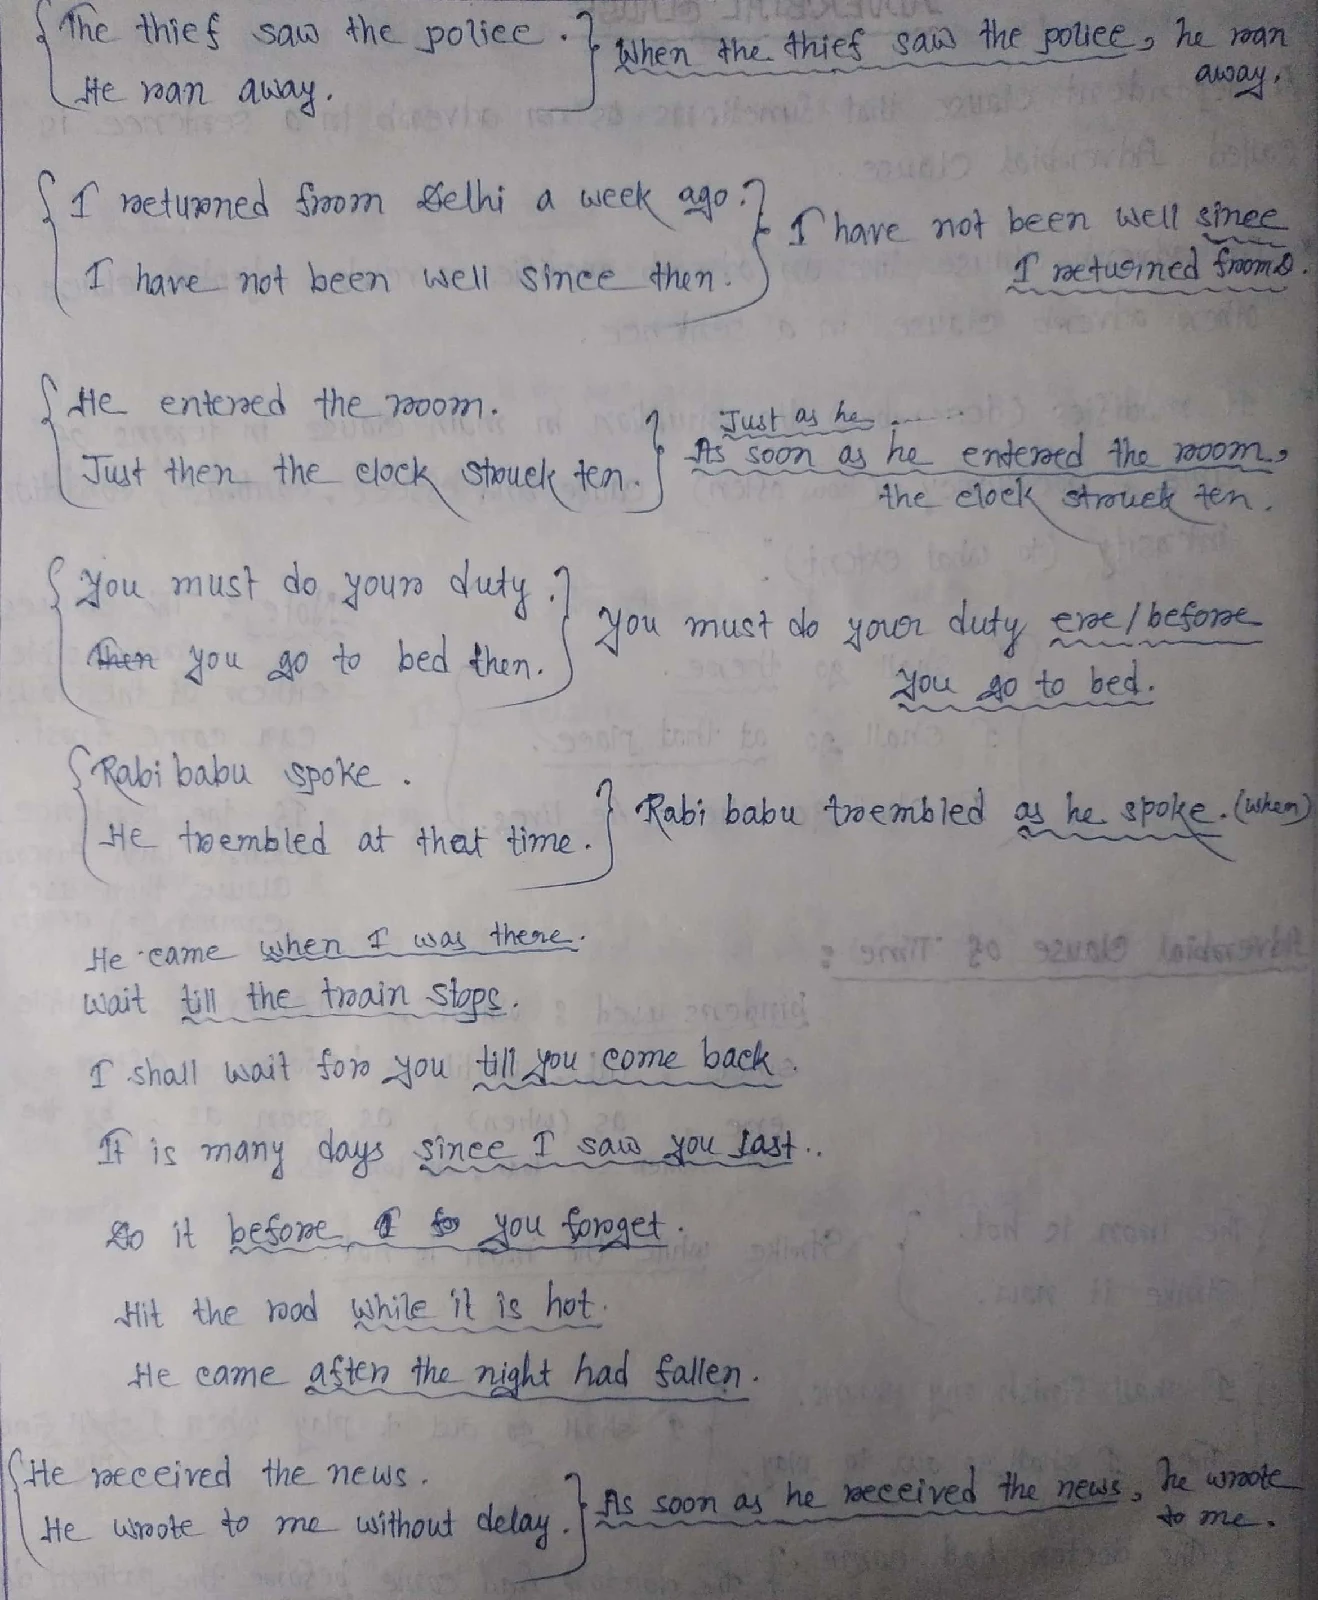 The thief saw the police.
He ran away.
When the thief saw the police, he ran
away.
I returned from Delhi a week ago.
I have not been well since then.
I have not been well since
I returned from D.
He entered the room.
Just then the clock struck ten.
Just as he ........
As soon as he entered the room,
the clock struck ten.
You must do your duty.
Then you go to bed then.
You must do your duty ere/before
you go to bed.
Rabi babu spoke.
He trembled at that time.
Rabi babu trembled as he spoke. (when)
He came when I was there.
Wait till the train stops.
I shall wait for you till you come back.
It is many days since I saw you last..
Do it before I fo you forget.
Hit the rod while it is hot.
He came after the night had fallen.
He received the news.
He wrote to me without delay.
As soon as he received the news, he wrote
to me.